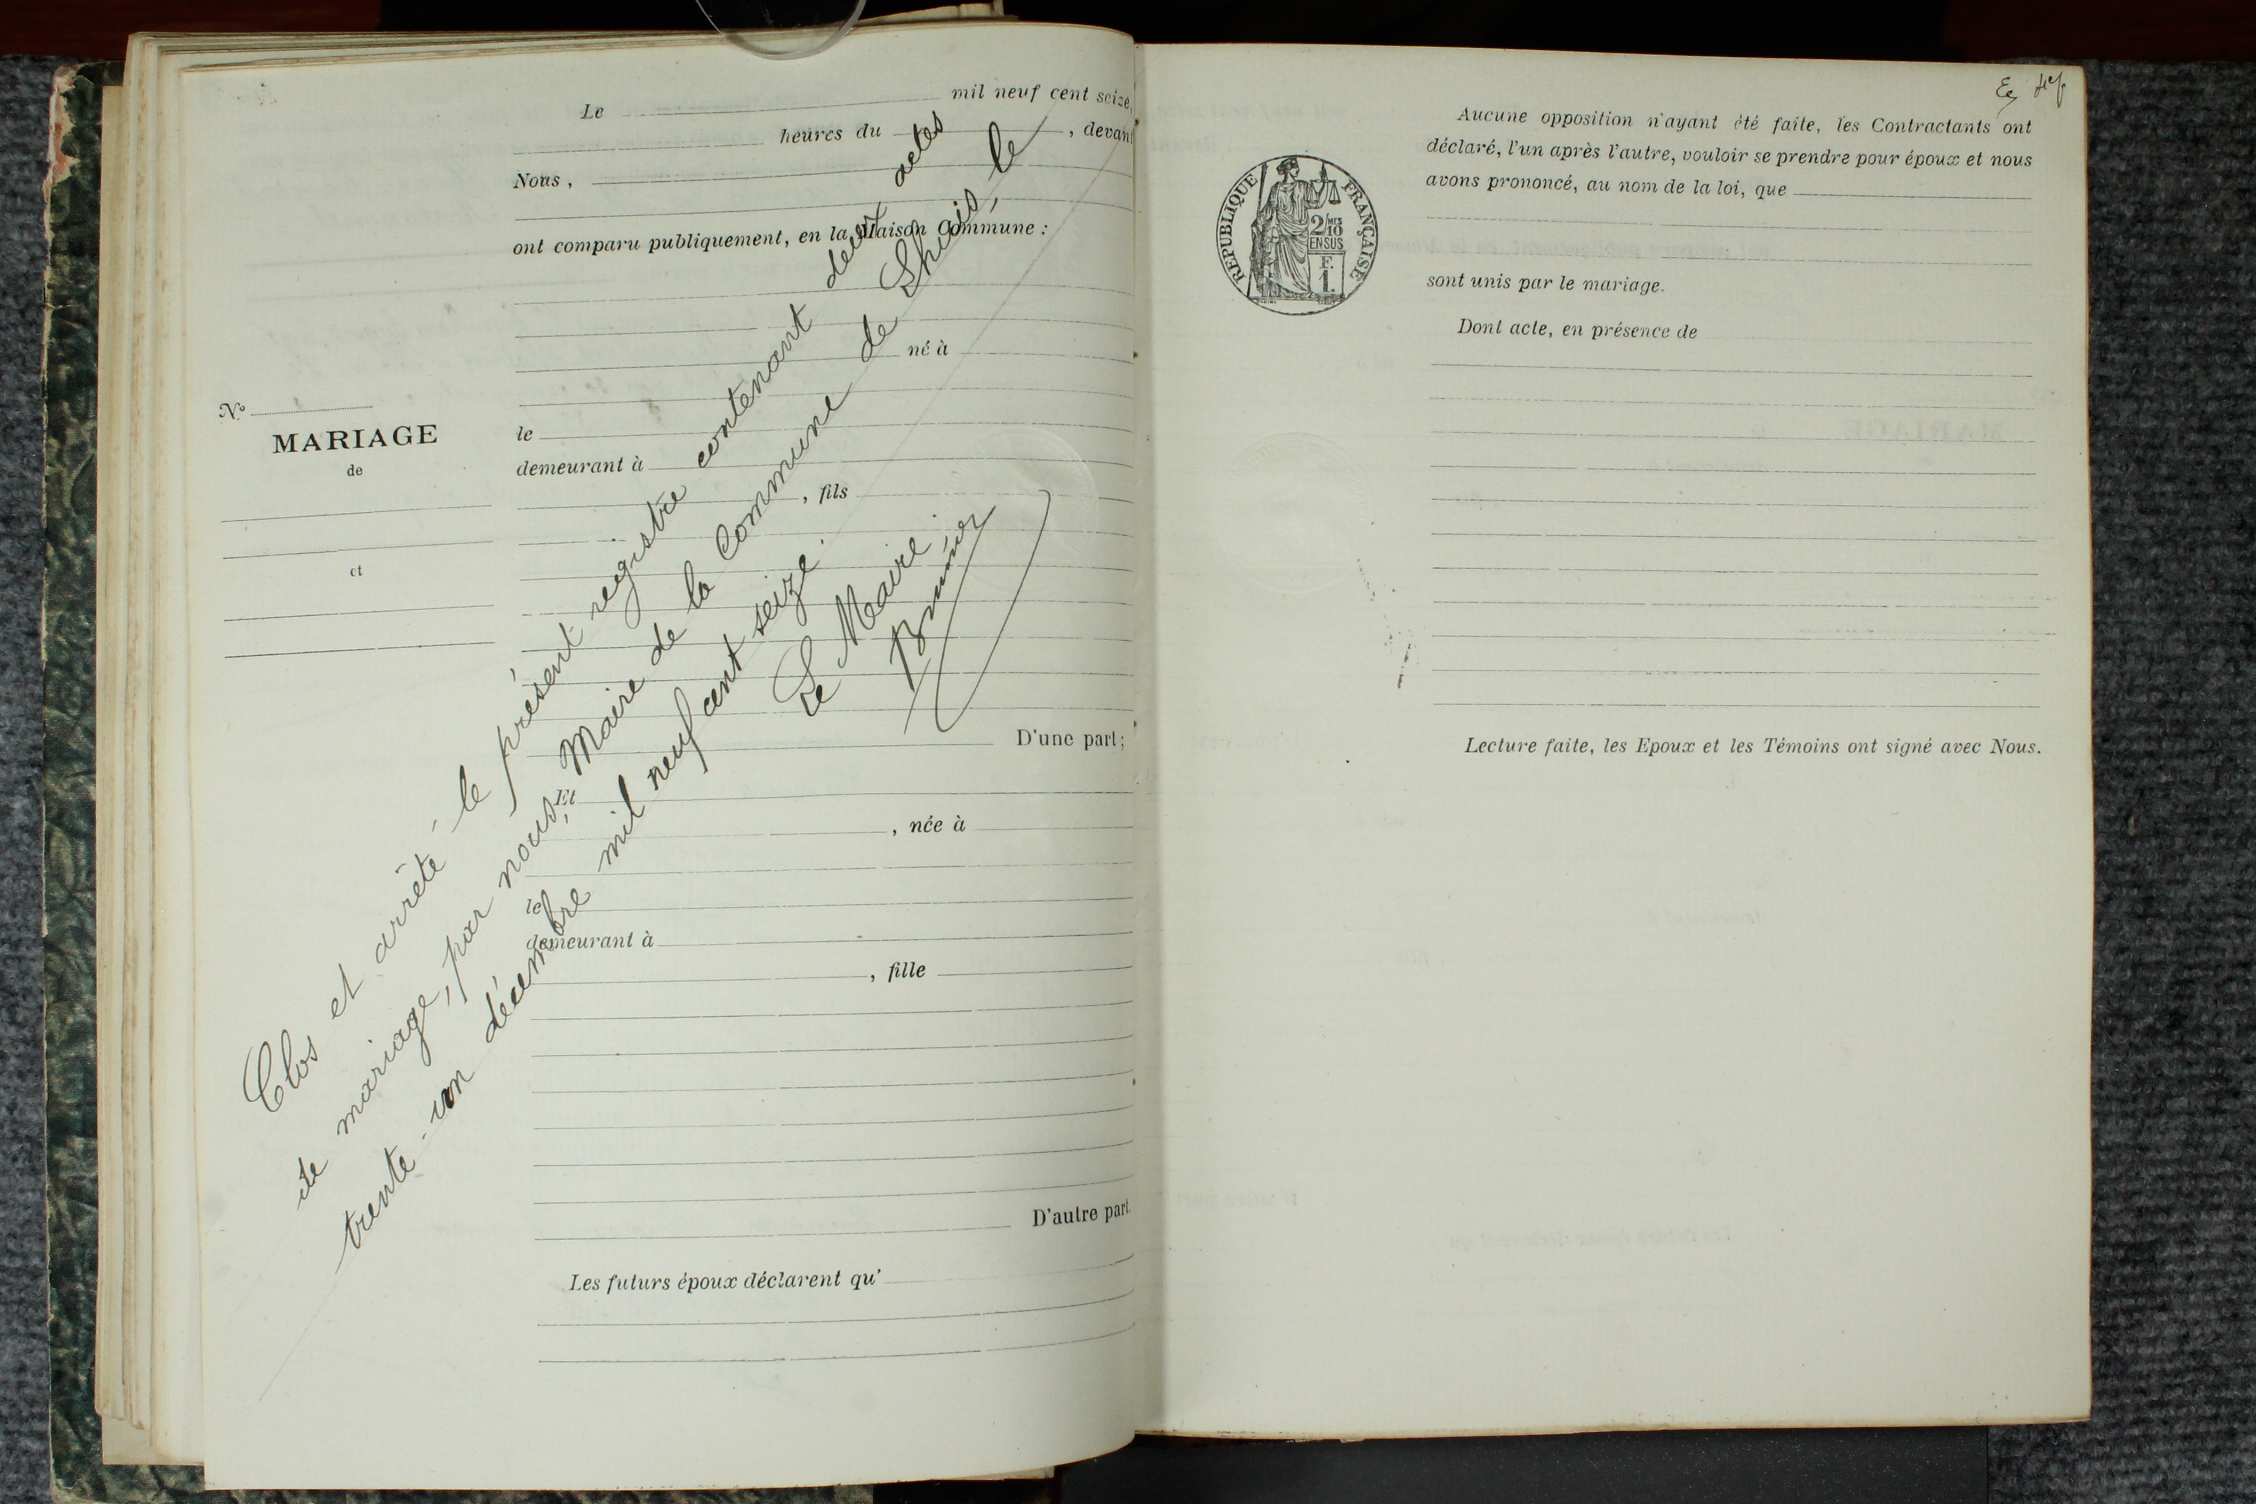 Le mil neuf cent seize,
heures du , devant
Nous,
ont comparu publiquement, en la Maison Commune :
né à
le
demeurant à
, fils
D'une part;
Et
, née à
le
demeurant à
, fille
D'autre part.
Les futurs époux déclarent qu'
N°
MARIAGE
de
et
Clos et arrêté le présent registre contenant deux actes
de mariage, par nous, Maire de la Commune de Lhuis, le
trente-un décembre mil neuf cent seize.
Le Maire,
Aucune opposition n'ayant été faite, les Contractants ont
déclaré, l'un après l'autre, vouloir se prendre pour époux et nous
avons prononcé, au nom de la loi, que
sont unis par le mariage.
Dont acte, en présence de
Lecture faite, les Epoux et les Témoins ont signé avec Nous.
REPUBLIQUE FRANÇAISE
2/10
EN SUS
F.
1.